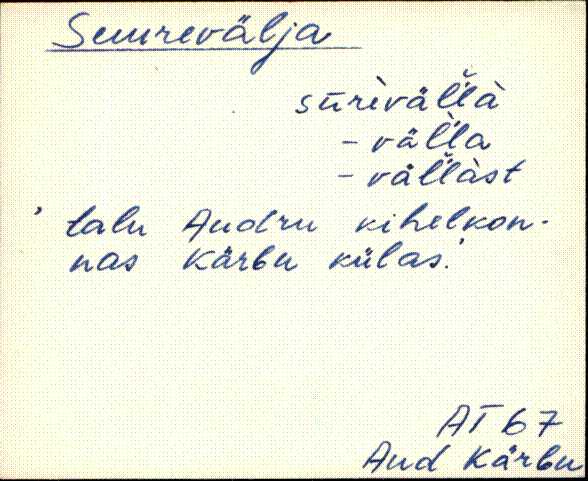 Suurevälja
sūrivällà
- välla
- vällàst
' talu Audru kihelkon-
nas Kärbu külas.'
AT 67
Aud Kärbu